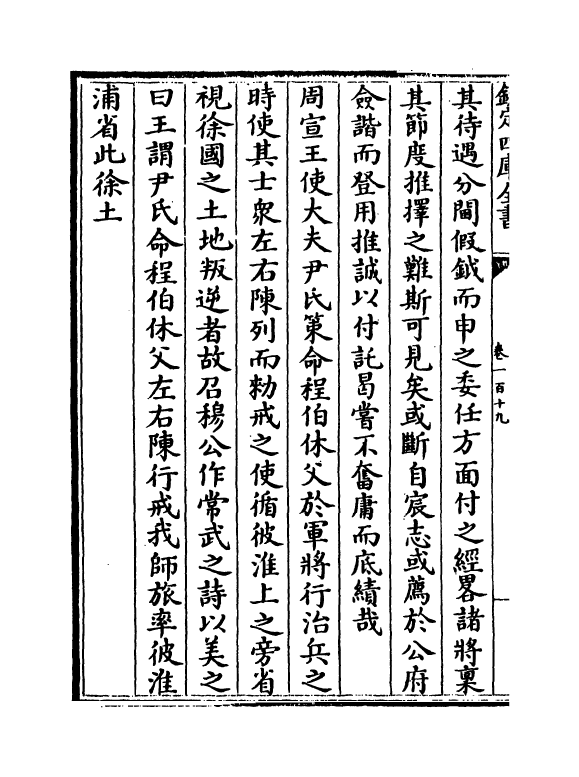 欽定四庫全書
卷一百十九
其待遇分閫假鉞而申之委任方面付之經畧諸將稟
其節度推擇之難斯可見矣或斷自宸志或薦於公府
僉諧而登用推誠以付託曷嘗不奮庸而底績哉
周宣王使大夫尹氏策命程伯休父於軍將行治兵之
時使其士衆左右陳列而勑戒之使循彼淮上之旁省
視徐國之土地叛逆者故召穆公作常武之詩以美之
曰王謂尹氏命程伯休父左右陳行戒我師旅率彼淮
浦省此徐土